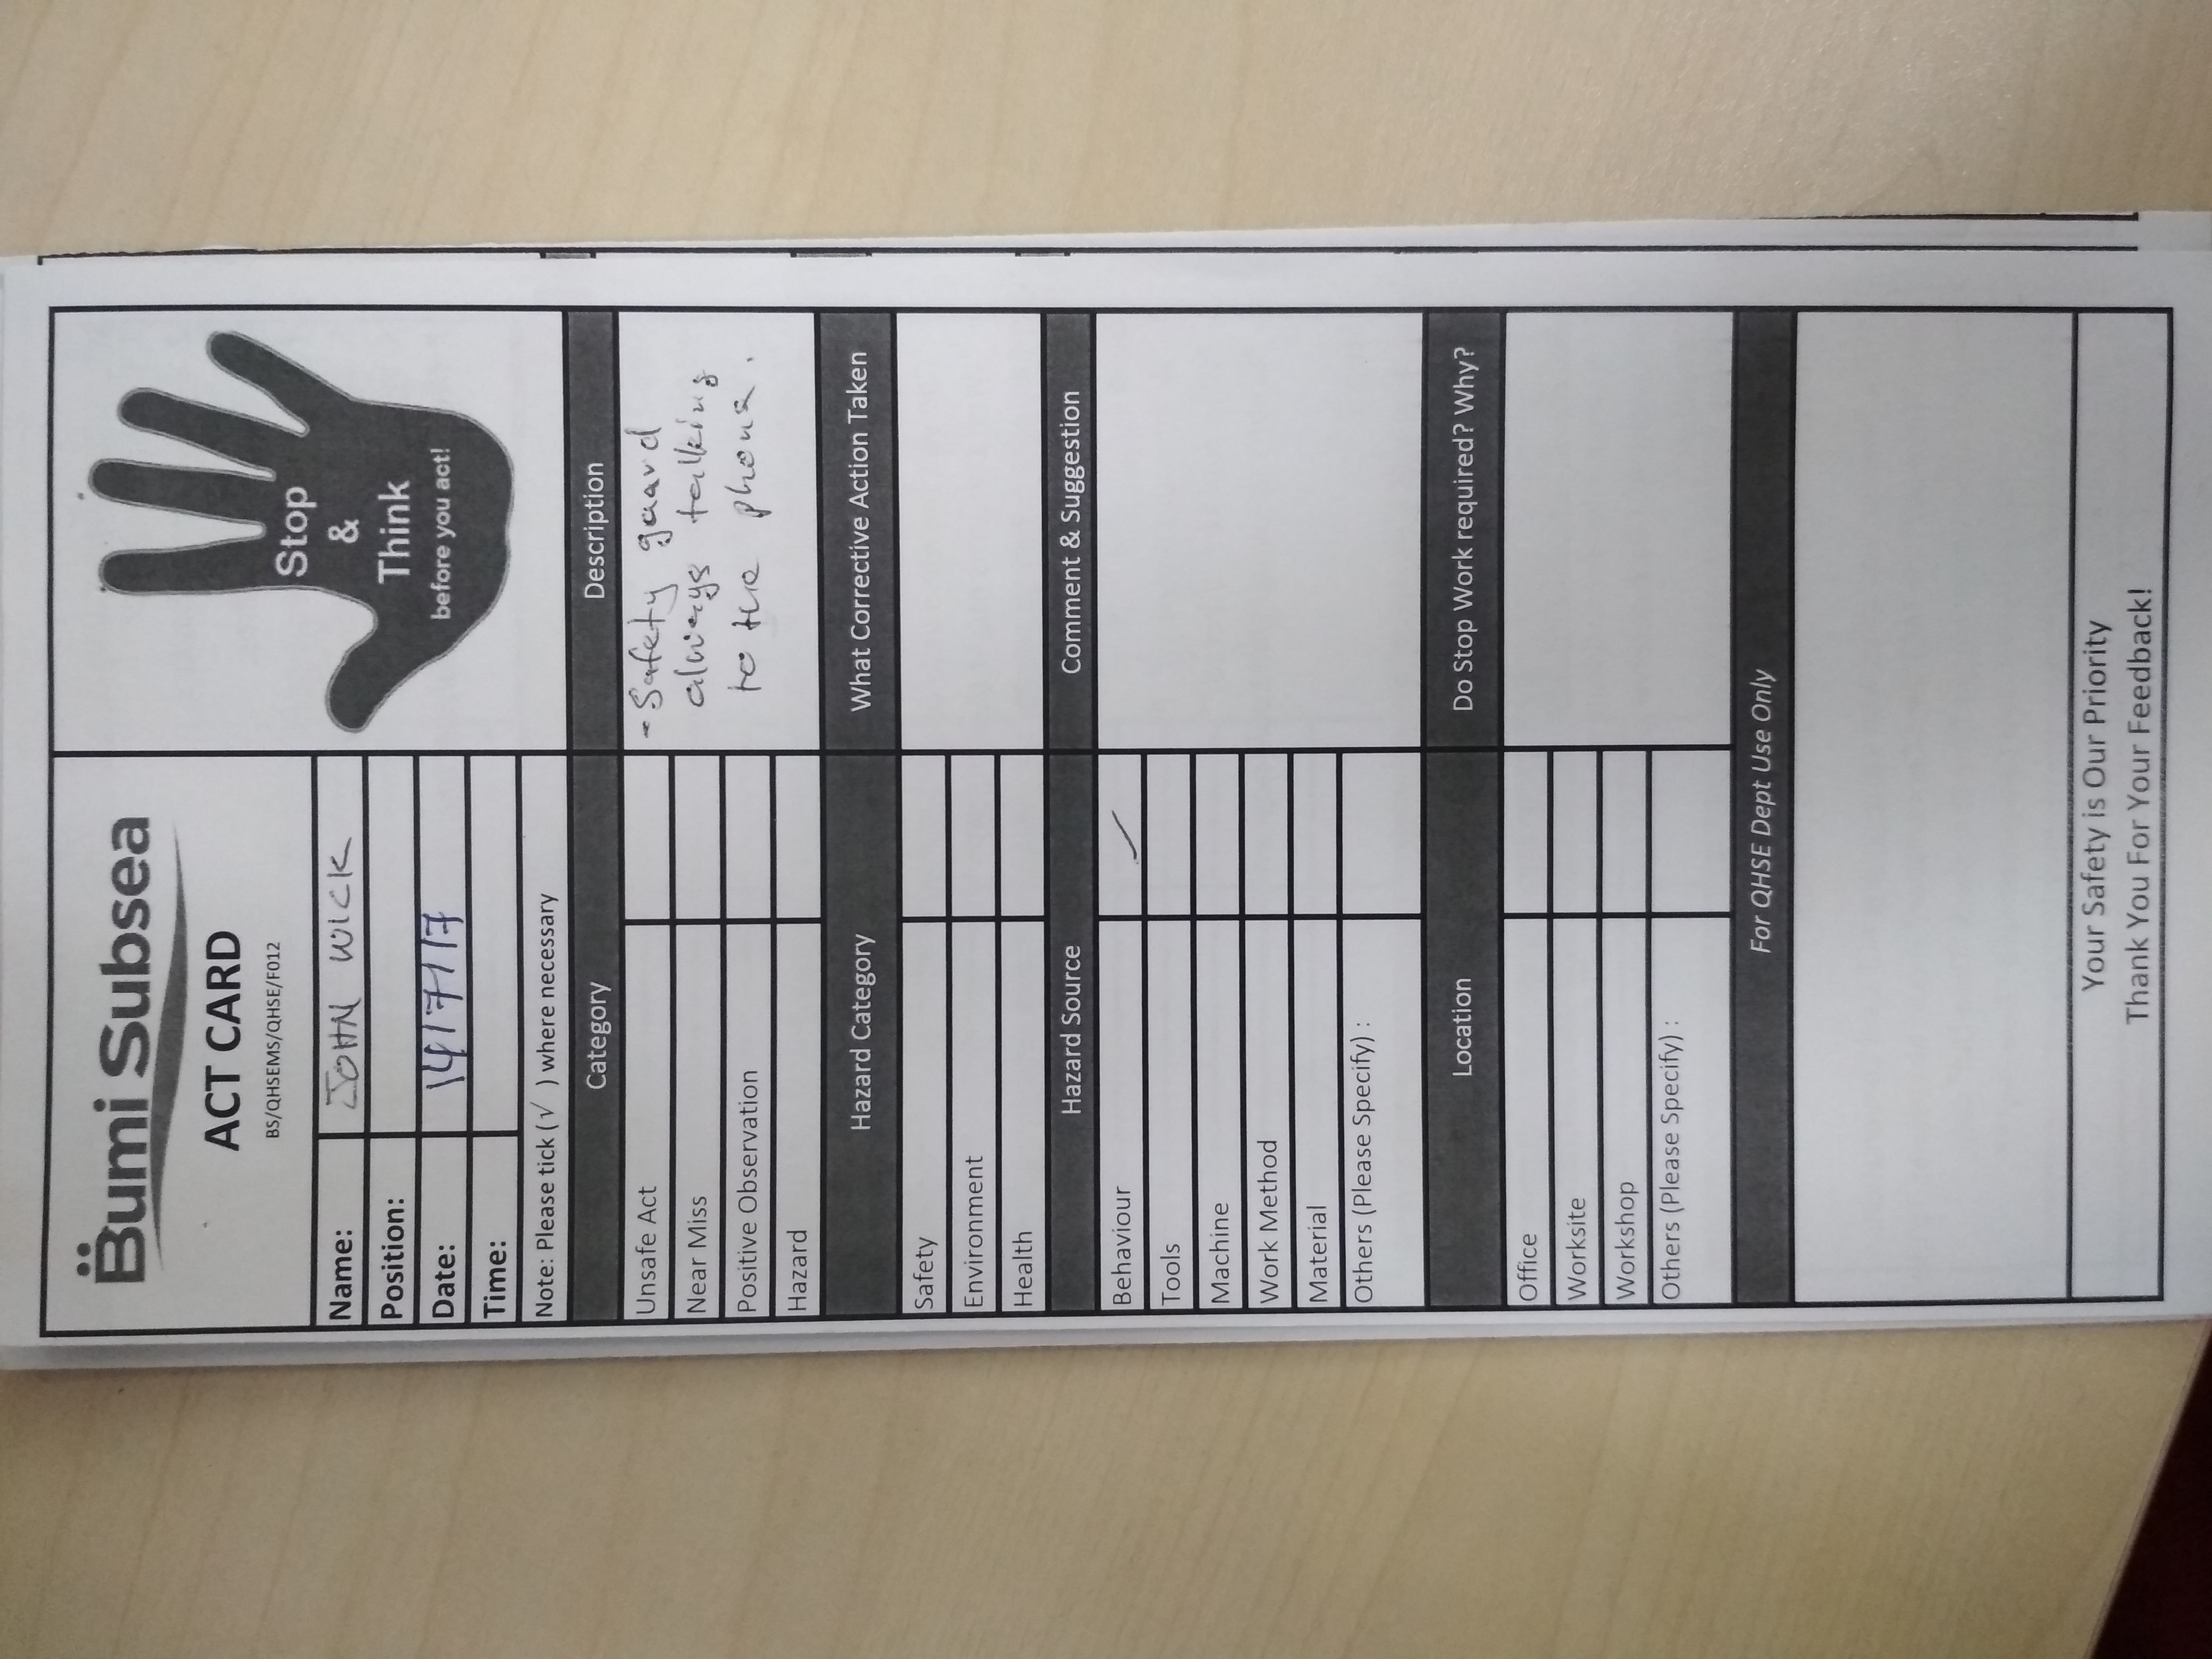 Bumi Subsea
ACT CARD
BS/QHSEMS/QHSE/F012
Stop
&
Think
before you act!
Name: JOHN WICK
Position:
Date: 14/7/17
Time:
Note: Please tick (√ ) where necessary
Category
Description
Unsafe Act
Near Miss
Positive Observation
Hazard
- Safety gaard
always talking
to the phone.
Hazard Category
What Corrective Action Taken
Safety
Environment
Health
Hazard Source
Comment & Suggestion
Behaviour ✓
Tools
Machine
Work Method
Material
Others (Please Specify) :
Location
Do Stop Work required? Why?
Office
Worksite
Workshop
Others (Please Specify) :
For QHSE Dept Use Only
Your Safety is Our Priority
Thank You For Your Feedback!